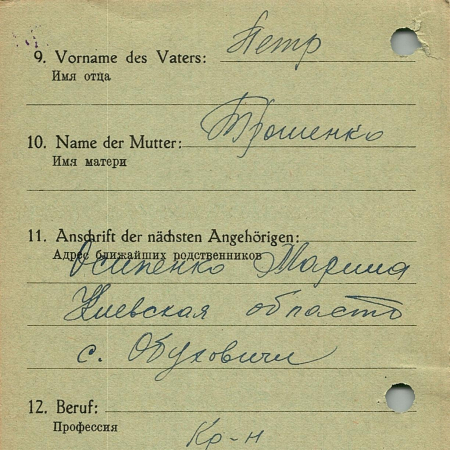 9. Vorname des Vaters: Петр
Имя отца
10. Name der Mutter: Трошенко
Имя матери
11. Anschrift der nächsten Angehörigen:
Адрес ближайших родственников
Осипенко Марина
Киевская область
с. Обуховичи
12. Beruf:
Профессия
Кр-н